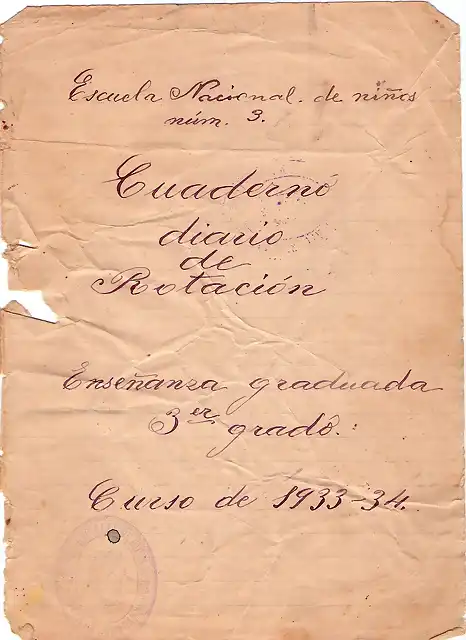 Escuela Nacional. de niños
núm. 3.
Cuaderno
diario
de
Rotación
Enseñanza graduada
3er grado.:
Curso de 1933-34.